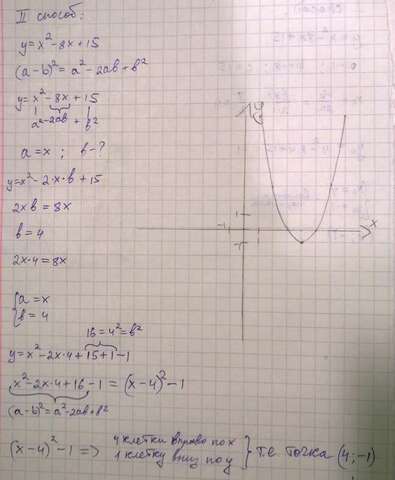 II способ:
y = x² - 8x + 15
(a-b)² = a² - 2ab + b²
y = x² - 8x + 15
a² - 2ab + b²
a = x ; b - ?
y = x² - 2·x·b + 15
2xb = 8x
b = 4
2x·4 = 8x
{ a = x
b = 4
16 = 4² = b²
y = x² - 2x·4 + 15 + 1 - 1
x² - 2x·4 + 16 - 1 = (x-4)² - 1
(a-b)² = a² - 2ab + b²
(x-4)² - 1 => 4 клетки вправо по x
1 клетку вниз по y } т.е. точка (4; -1)
y
1
-1 1 x